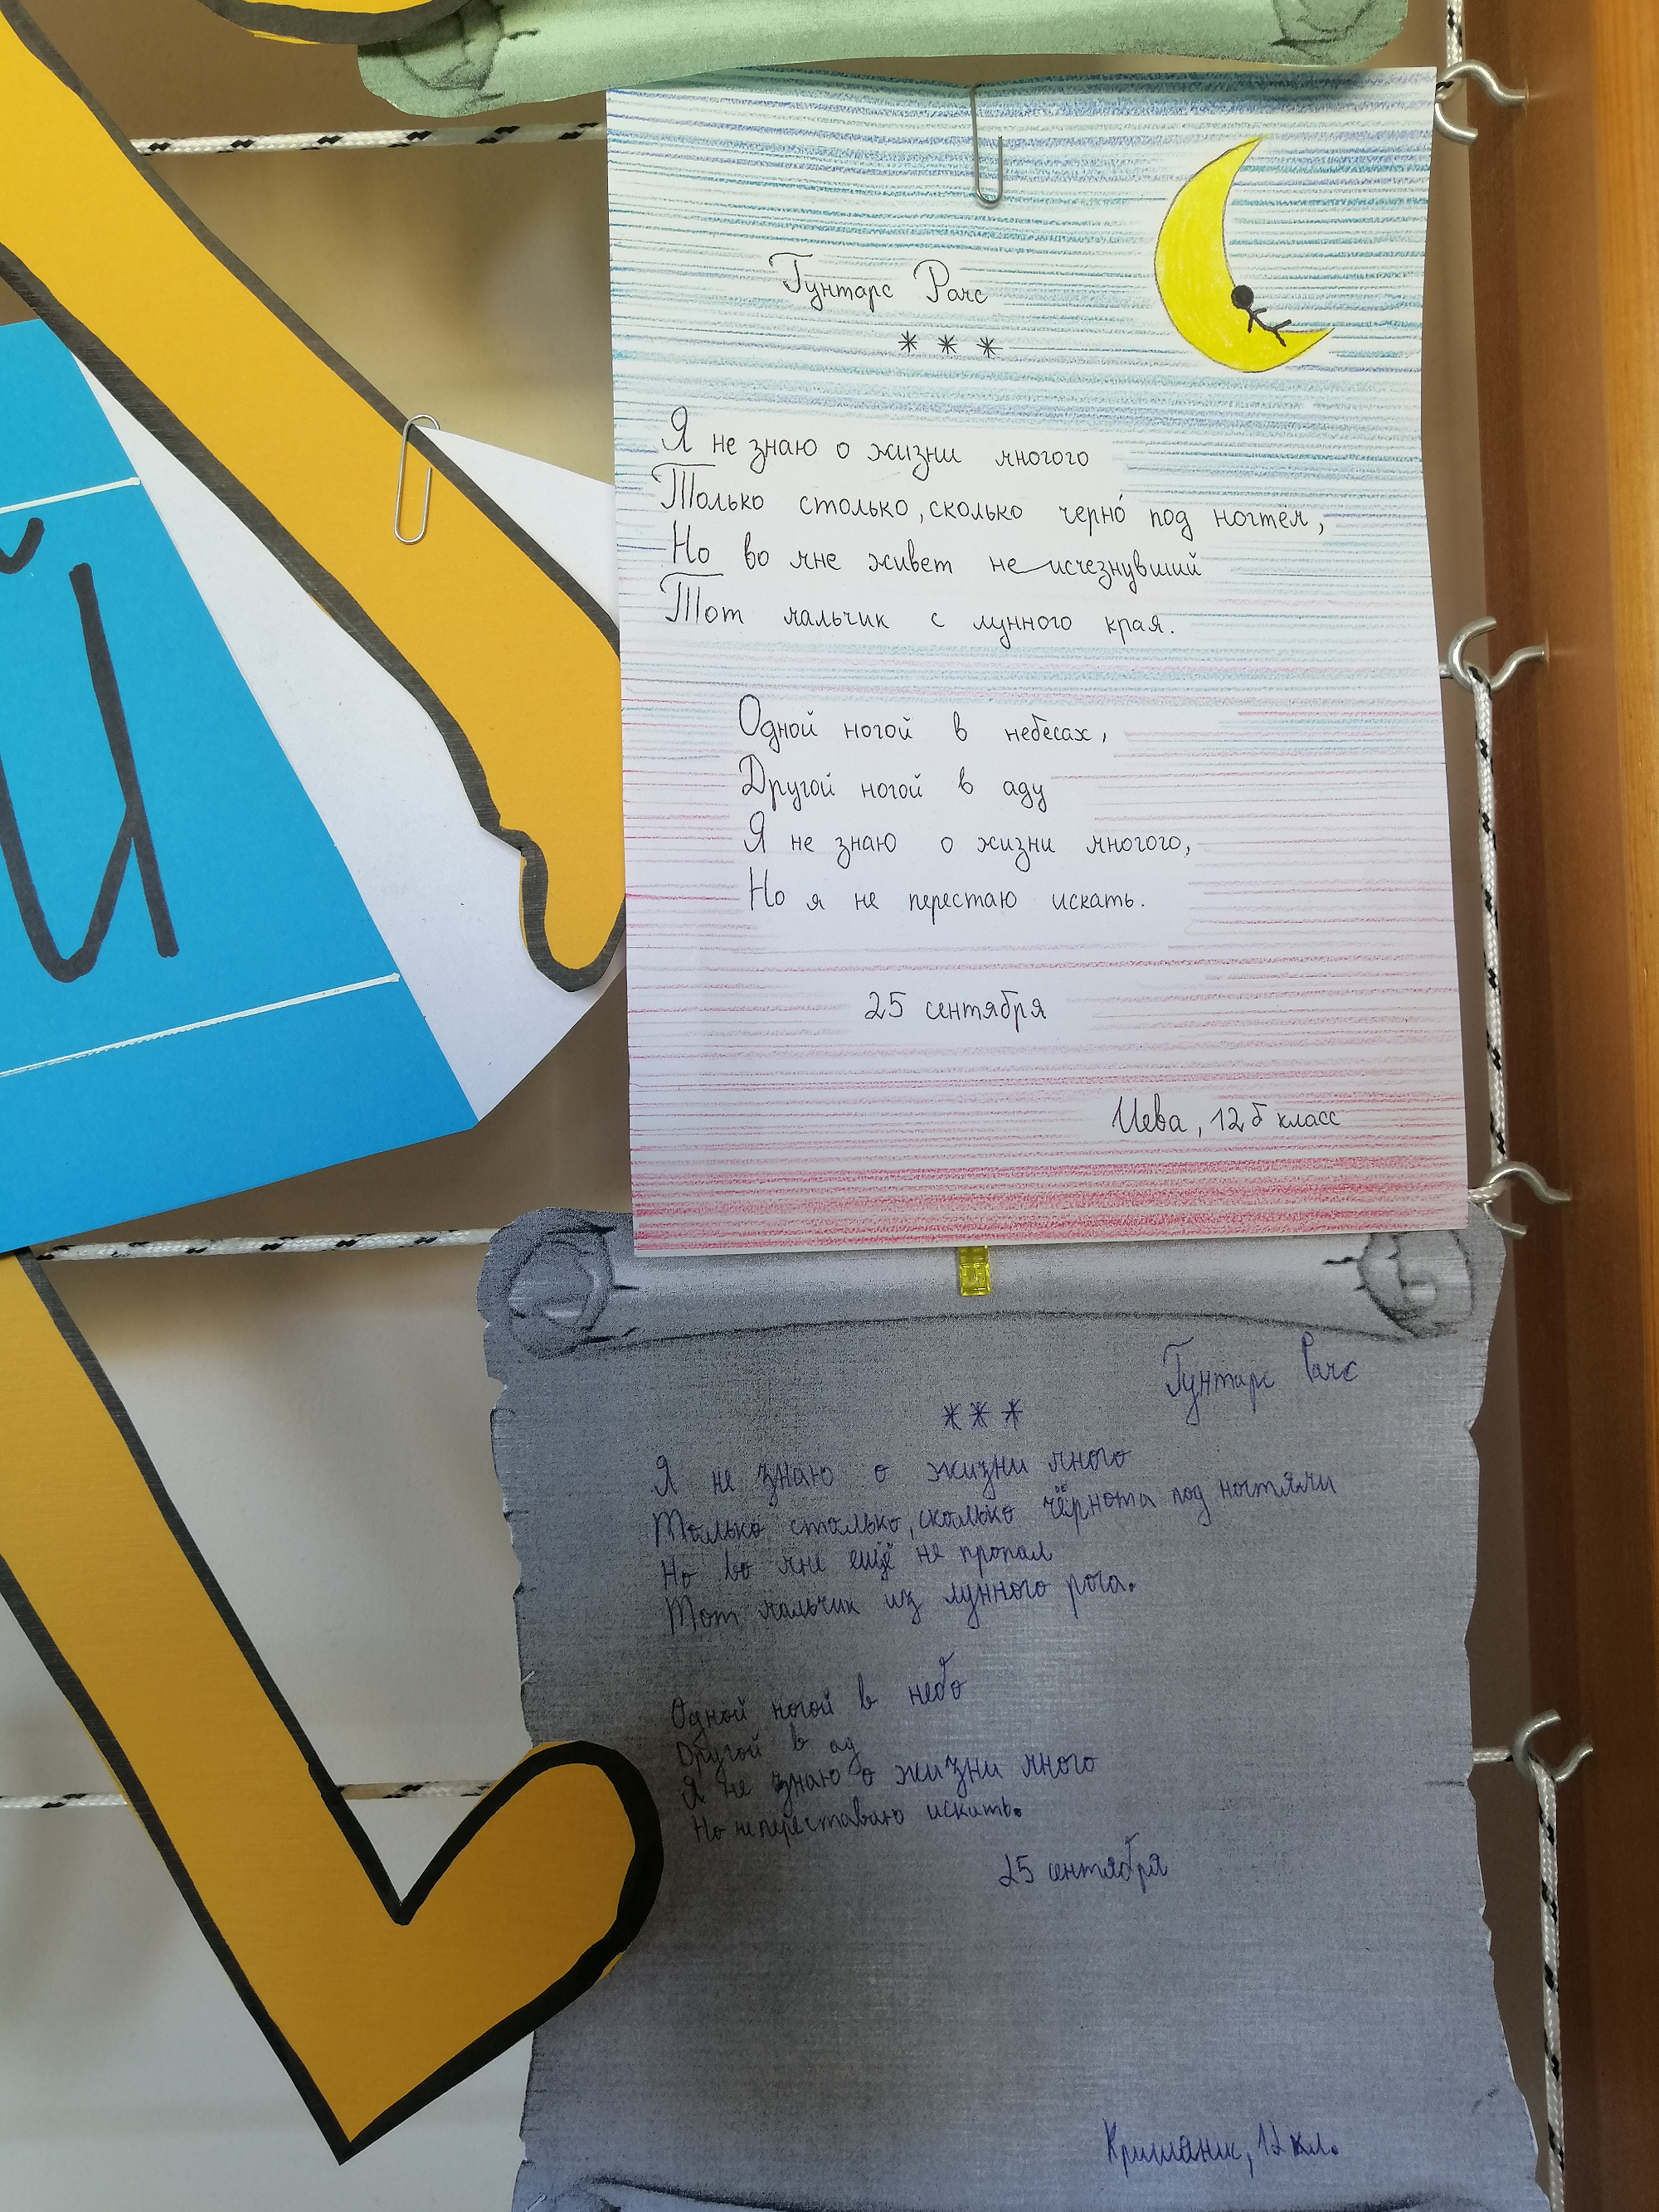 й
Гунтарс Рачс
* * *
Я не знаю о жизни многого
Только столько, сколько черно́ под ногтем,
Но во мне живет не исчезнувший
Тот мальчик с лунного края.
Одной ногой в небесах,
Другой ногой в аду
Я не знаю о жизни многого,
Но я не перестаю искать.
25 сентября
Иева, 12 б класс
Гунтарс Рачс
* * *
Я не знаю о жизни много
Только столько, сколько чёрнота под ногтями
Но во мне ещё не пропал
Тот мальчик из лунного рога.
Одной ногой в небо
Другой в ад
Я не знаю о жизни много
Но не переставаю искать.
25 сентября
12 кл.